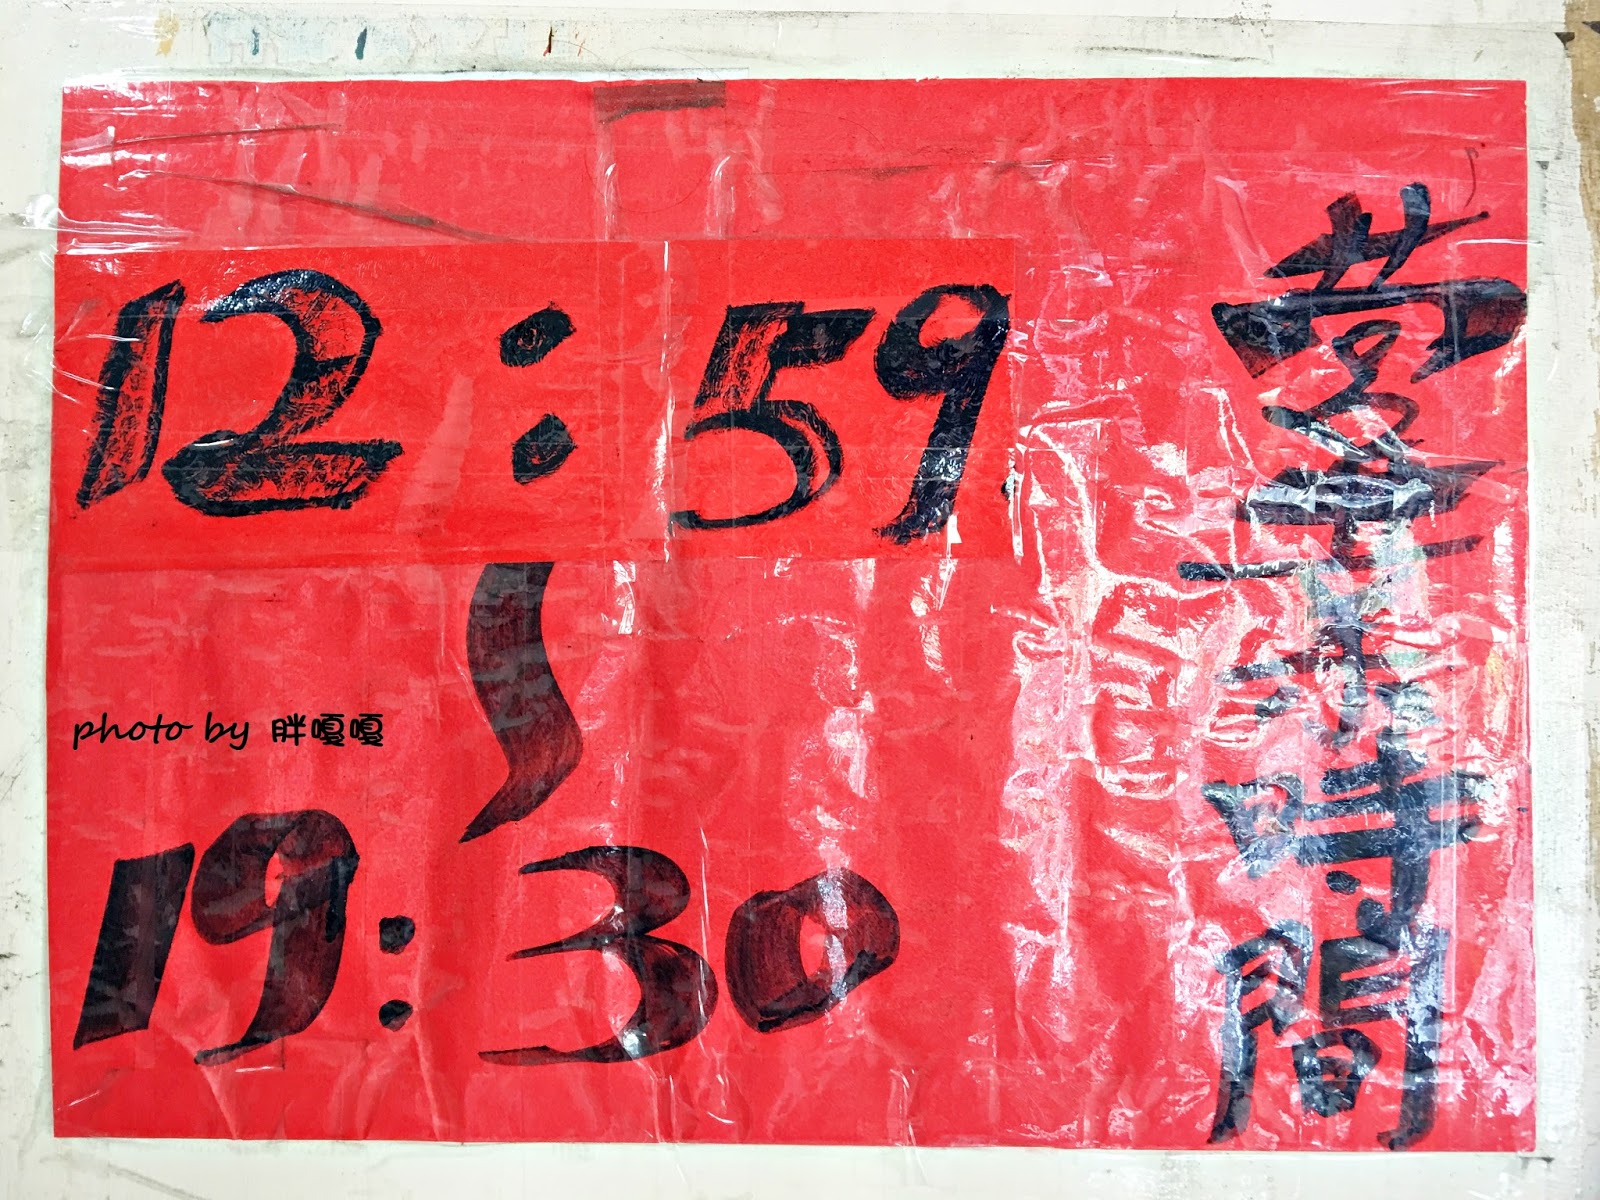 營業時間
12:59
~
19:30
photo by 胖嘎嘎